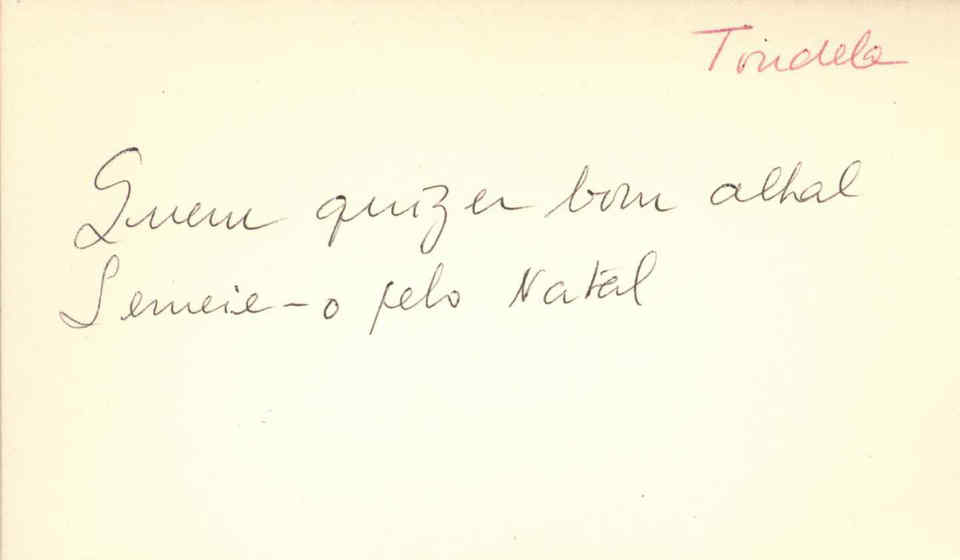 Tondela
Quem quizer bom alhal
Semeie-o pelo Natal